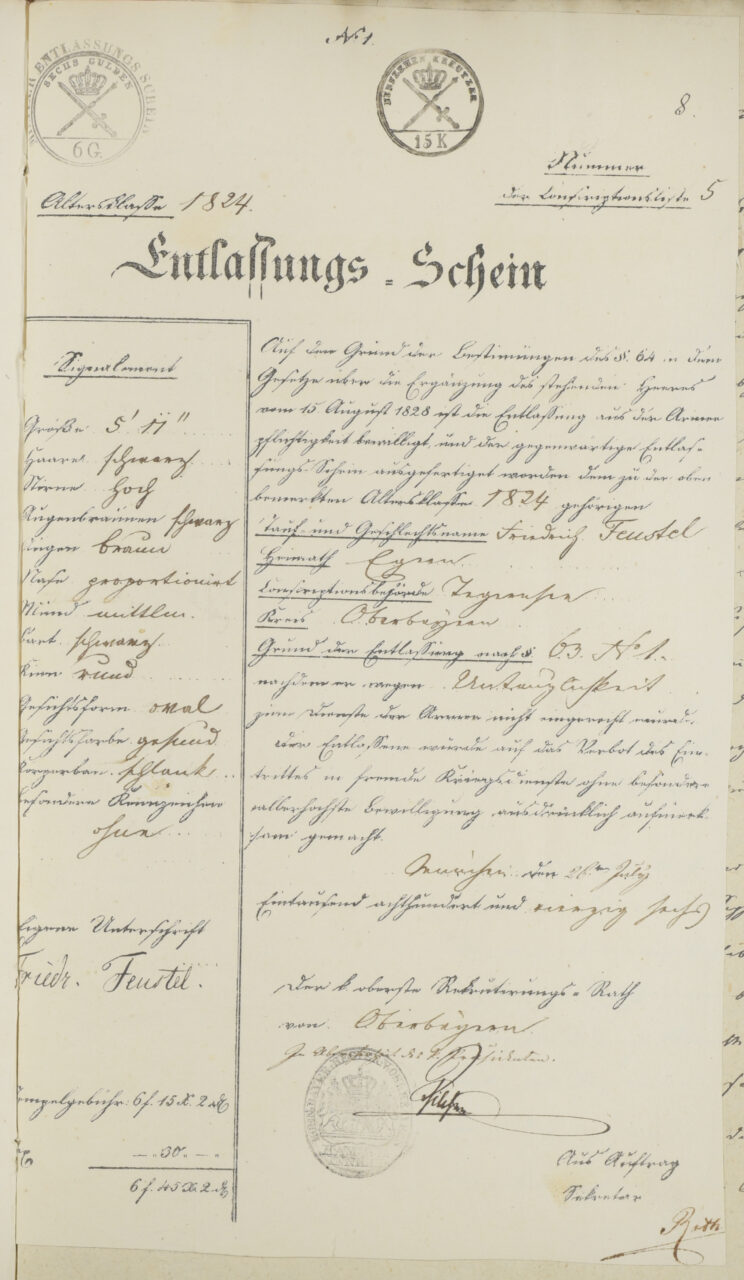 No 1.
ENTLASSUNGS SCHEIN
SECHS GULDEN
6 G.
KREUTZER
15 K
8.
Nummer
der Conscriptionsliste 5
Altersklasse 1824.
Entlassungs-Schein
Signalement
Größe 5' 11"
Haare schwarz
Stirne hoch
Augenbraunen schwarz
Augen braun
Nase proportionirt
Mund mittlm.
Bart schwarz.
Kinn rund
Gesichtsform oval
Gesichtsfarbe gesund
Körperbau schlank
Besondere Kennzeichen
ohne
Eigene Unterschrift
Friedr. Feustel.
Stempelgebühr: 6 f. 15 X. 2 dl
— „ 30 „ — „
6 f. 45 X. 2 dl
Auf den Grund der Bestimmungen des §. 64 in dem
Gesetze über die Ergänzung des stehenden Heeres
vom 15 August 1828 ist die Entlassung aus der Armee
pflichtigkeit bewilligt, und der gegenwärtige Entlas-
sungs-Schein ausgefertiget worden dem zu der oben
bemerkten Altersklasse 1824 gehörigen
Tauf- und Geschlechtsname Friedrich Feustel
Heimath Egern
Conscriptionsbehörde Tegernsee
Kreis Oberbayern
Grund der Entlassung nach § 63. No 1.
nachdem er wegen Untauglichkeit
zum Dienste der Armee nicht eingereiht wurde.
Der Entlassene wurde auf das Verbot des Ein-
trittes in fremde Kriegsdienste ohne besondere
allerhöchste Bewilligung ausdrücklich aufmerk-
sam gemacht.
München den 26ten July
Eintausend achthundert und vierzig sechs
Der k. oberste Rekrutirungs-Rath
von Oberbayern
In Abwesenheit des k. Präsidenten.
Aus Auftrag
Sekretär
Roth